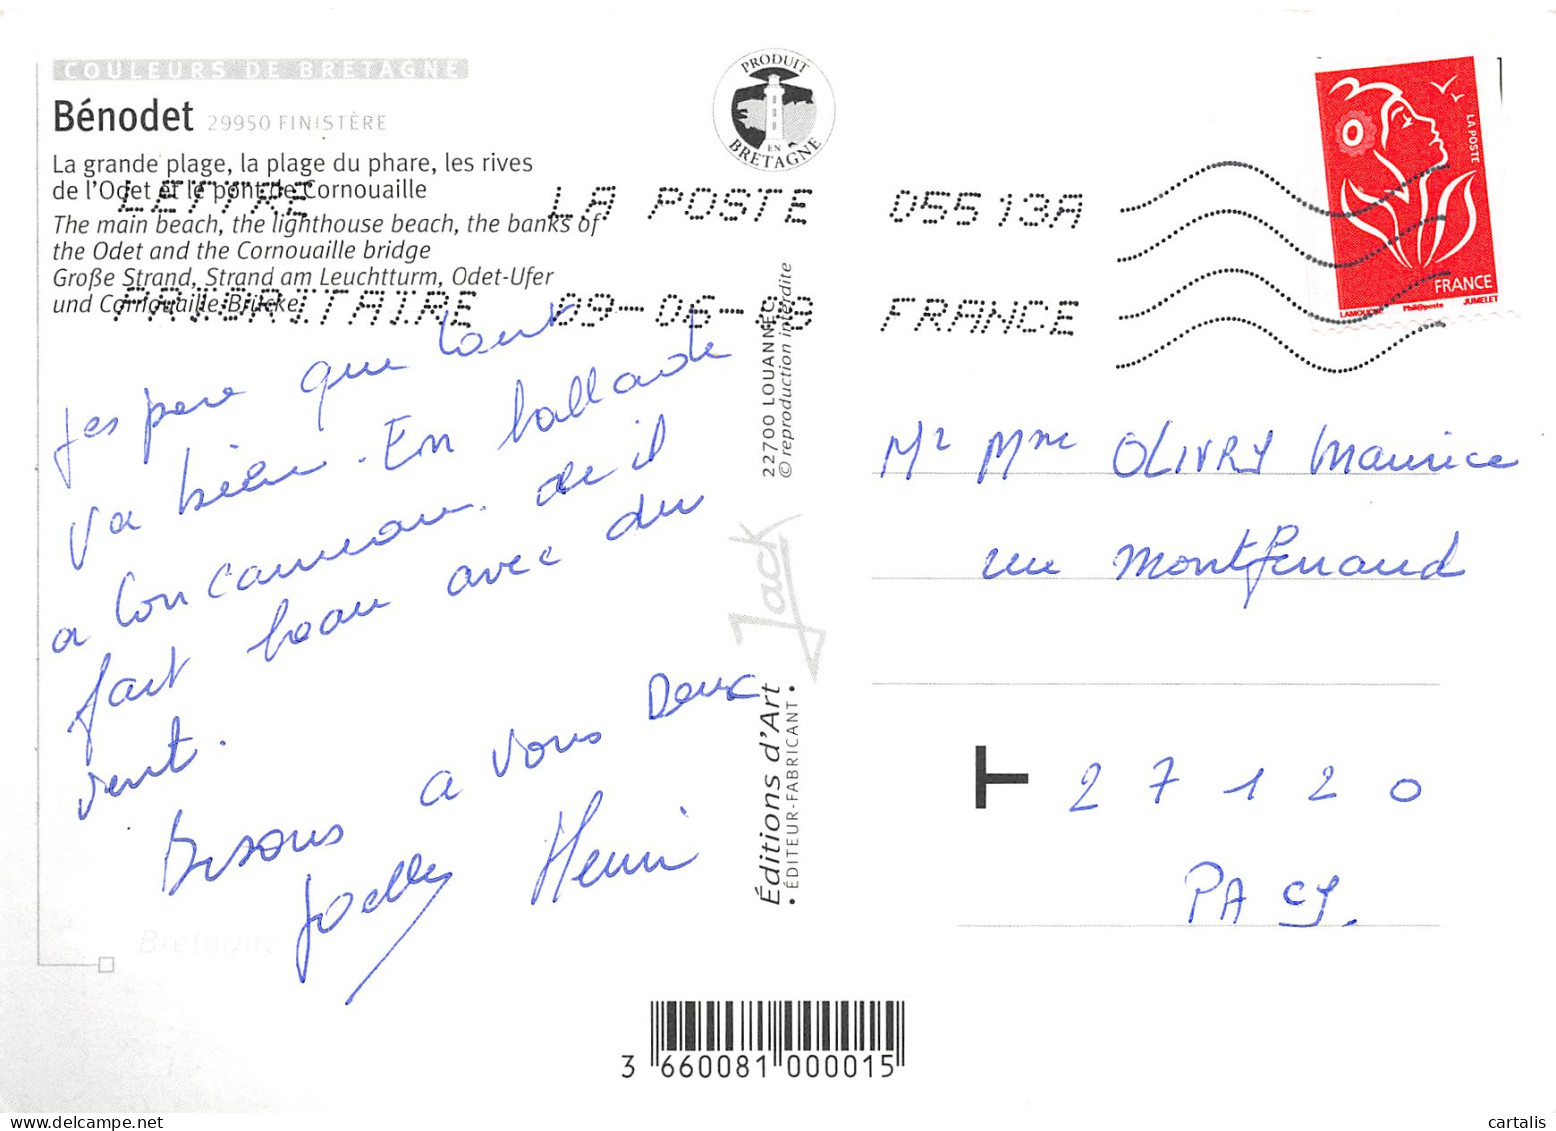 COULEURS DE BRETAGNE
Bénodet 29950 FINISTÈRE
La grande plage, la plage du phare, les rives
de l'Odet et le pont de Cornouaille
The main beach, the lighthouse beach, the banks of
the Odet and the Cornouaille bridge
Große Strand, Strand am Leuchtturm, Odet-Ufer
und Cornouaille Brücke
PRODUIT
EN
BRETAGNE
LETTRE
PRIORITAIRE
LA POSTE
09-06-
05513A
FRANCE
LA POSTE
FRANCE
LAMOUCHE Phil@poste JUMELET
Jespere que tout
va bien. En ballade
a Concarneau. de il
fait beau avec du
vent.
Bisous a vous Deux
Joelle Henri
22700 LOUANNEC
© reproduction interdite
Jack
Éditions d'Art
• ÉDITEUR-FABRICANT •
Mr Mme OLIVRY Maurice
rue Montferrand
27120
PACY.
Bretagne
3 660081 000015